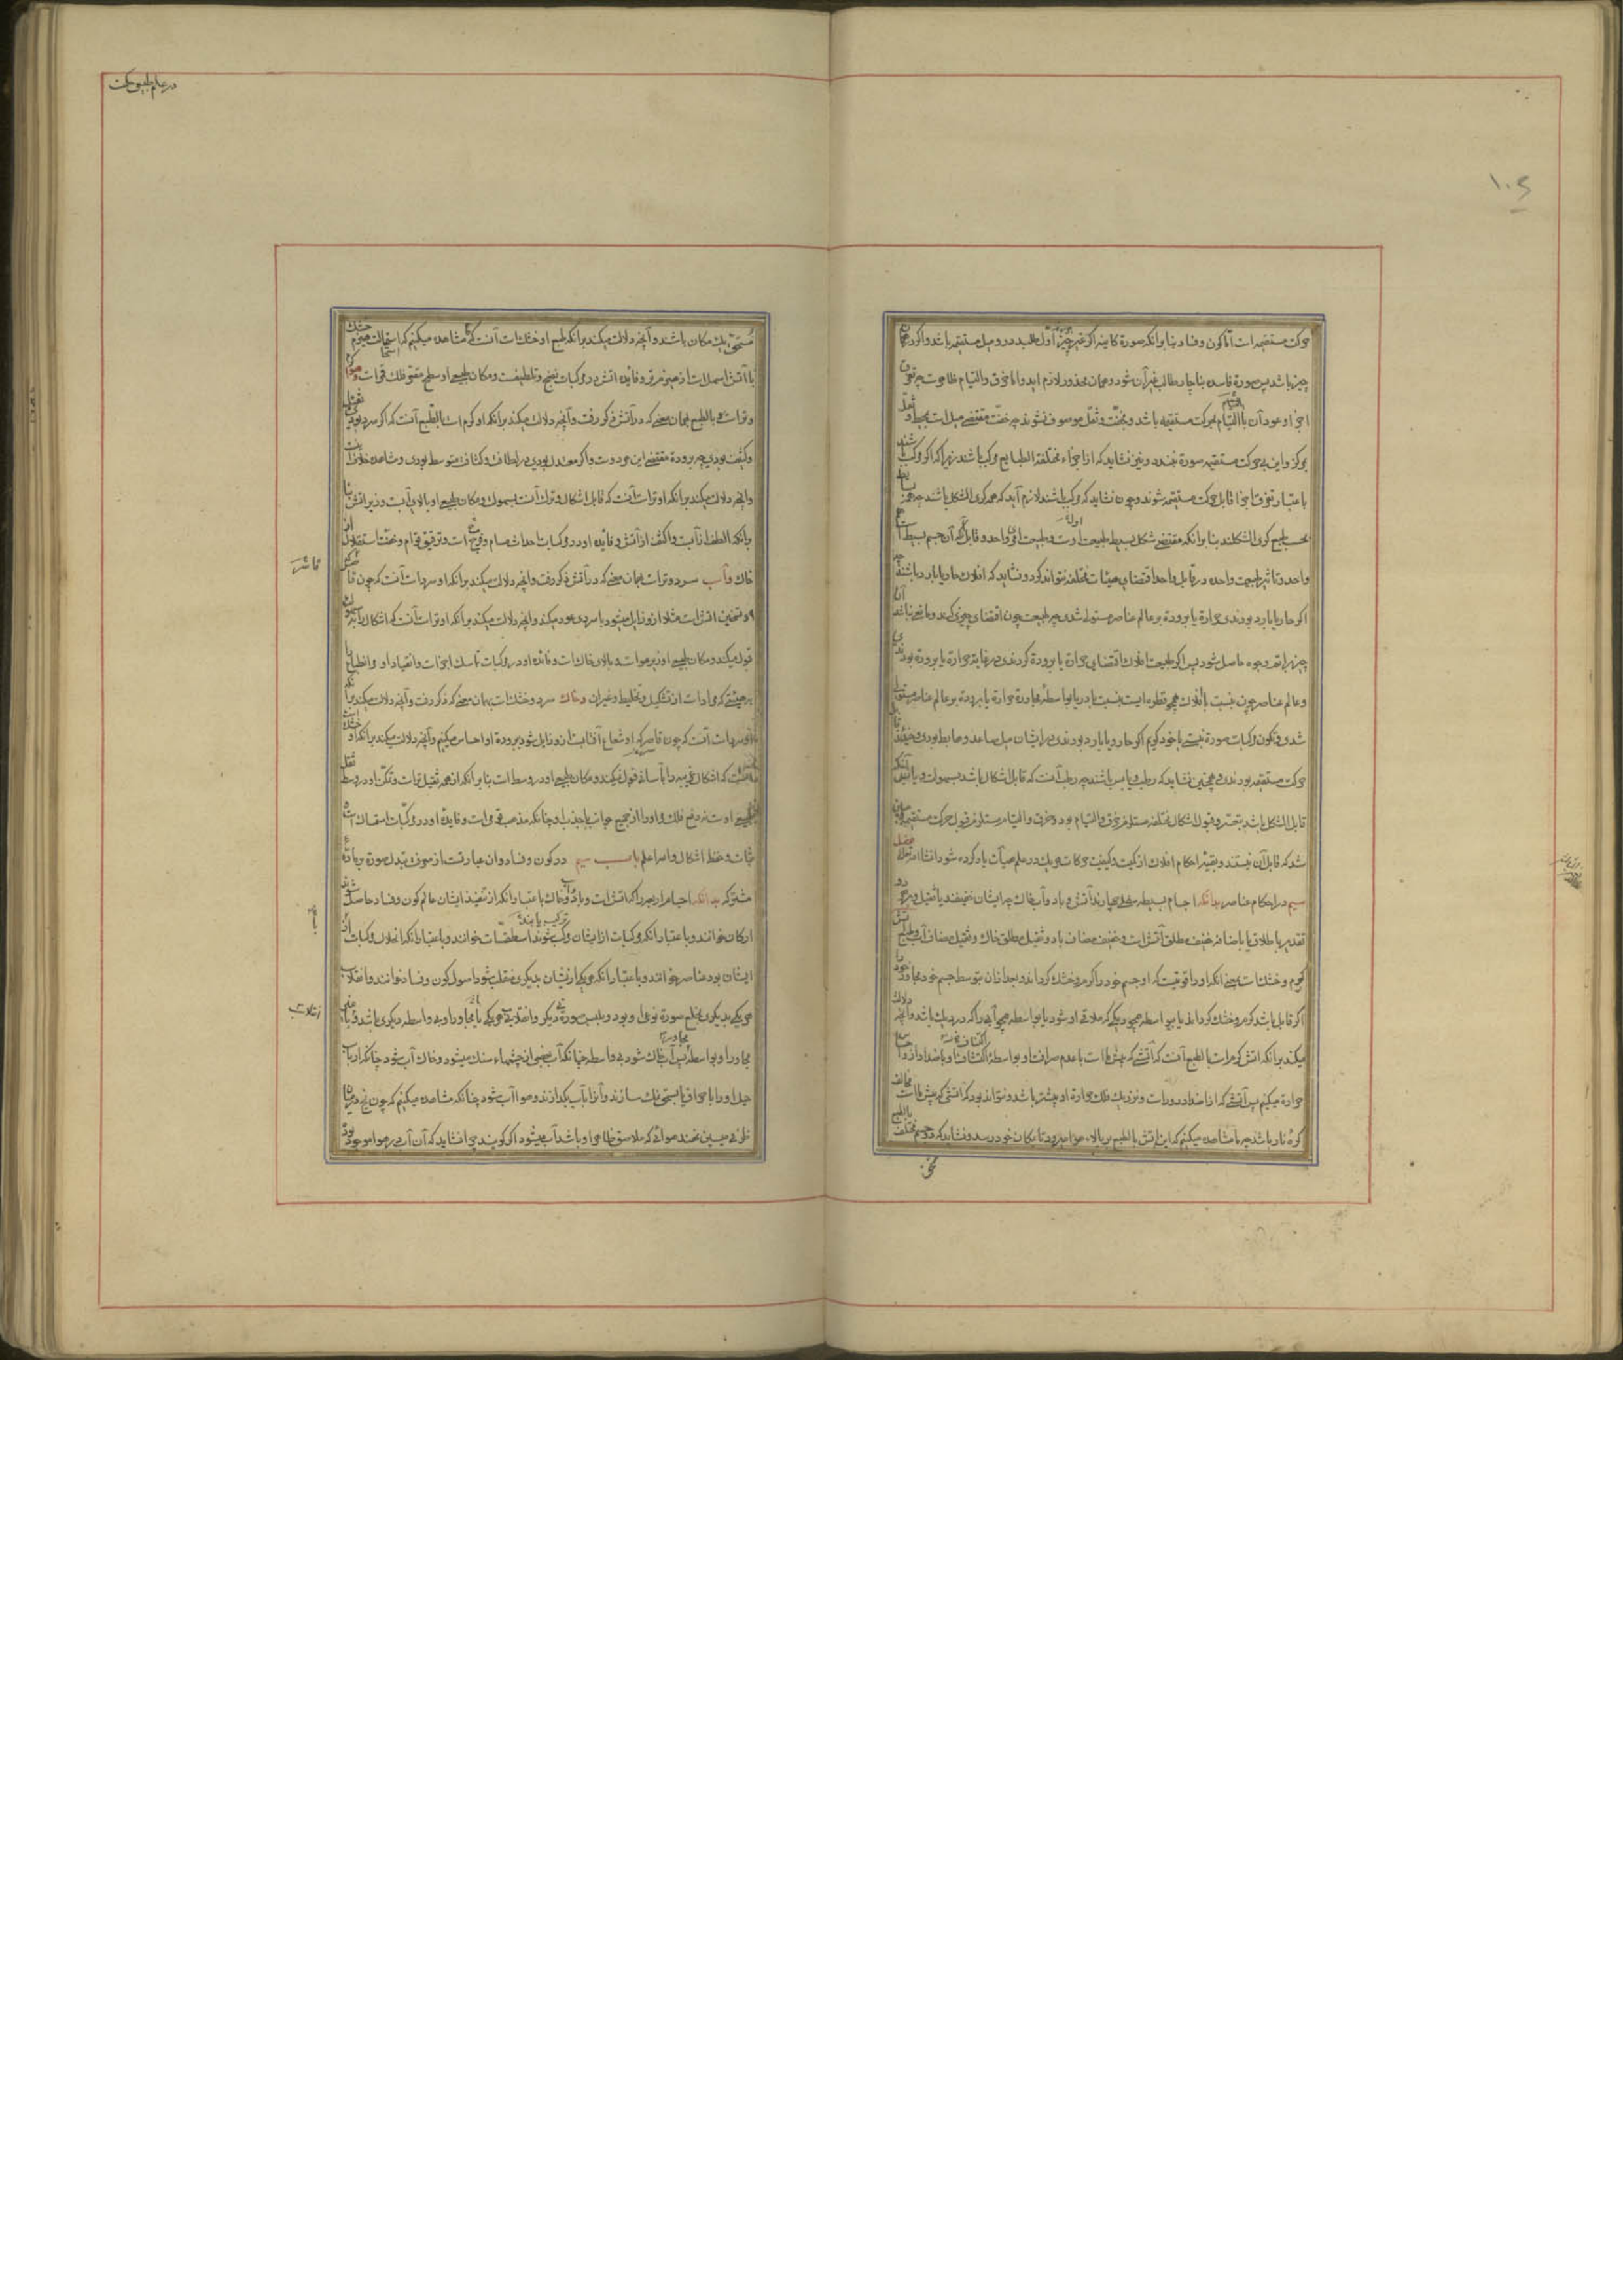 در علم طبیعی حکمت
حرکت مستقیمه است اما کون و فساد بنا برانکه صورة کاینه اکر غیر حیز اول طلبد درو میل مستقیم باشد و اکر در همان
حیز باشد پس صورة فاسده بناچار طالب غیر آن شود و همان محذور لازم اید و اما خرق و التیام ظاهرست چه تفرق
اجزا و عود آن با التیام بحرکت مستقیمه باشد و بخفت و ثقل موصوف نشوند چه خفت مقتضی میل است بمحیط و ثقل
بمرکز و این بی حرکت مستقیمه صورة نبندد و نیز نشاید که از اجزاء مختلفة الطبایع مرکب باشند زیرا که اکر مرکب باشند
باعتبار تفرق اجزا قابل حرکت مستقیمه شوند و چون نشاید که مرکب باشند لازم آید که همه کری الشکل باشند چه همه بسایط
بحسب طبع کری الشکلند بنا برانکه مقتضی شکل بسیط طبیعت اوست و طبیعت او واحد و قابل که آن جسم بسیط است
واحد و تاثیر طبیعت واحده در قابل واحد اقتضای هیئات مختلفه نتواند کرد و نشاید که افلاک حار یا بارد باشند چه
اکر حار یا بارد بودندی حرارة یا برودة بر عالم عناصر مستولی شدی چه طبیعت چون اقتضای چیزی کند و مانعی نباشد آن
چیز باتم وجوه حاصل شود پس اکر طبیعت افلاک اقتضای حرارة یا برودة کردندی در غایة حرارة یا برودة بودندی
و عالم عناصر چون نسبت بافلاک همچو قطره ایست نسبت با دریا بواسطهٔ مجاورة حرارة یا برودة بر عالم عناصر مستولی
شدی و تکون مرکبات صورة نبستی یا خود کویم اکر حار و یا بارد بودندی در ایشان میل صاعد و هابط بودی و حینئذ قابل
حرکت مستقیمه بودندی و همچنین نشاید که رطب و یابس باشند چه رطب آنست که قابل اشکال باشد بسهولت و یابس آنکه
قابل اشکال باشد بتعسر و قبول اشکال مختلفه مستلزم خرق و التیام بود و خرق و التیام مستلزم قبول حرکت مستقیمه
شد که قابل آن نیستند و بقیهٔ احکام افلاک از کمیت و کیفیت حرکات هر یک در علم هیأت یاد کرده شود انشا الله
سیم در احکام عناصر بدانکه اجسام بسیطه سفلی چهارند آتش و باد و آب و خاک چه ایشان خفیفند یا ثقیل و بر هر دو
تقدیر یا باطلاق یا باضافه خفیف مطلق آتش است و خفیف مضاف باد و ثقیل مطلق خاک و ثقیل مضاف آب
کرم و خشک است بمعنی انکه او را قوتیست که او جسم خود را کرم و خشک کرداند و بعد ازان بتوسط جسم خود مجاور خود را
اکر قابل باشد کرم و خشک کرداند یا بی واسطه همچو دیکی که ملاقی او شود یا بواسطه همچو آبی را که در دیک باشد و آنچه دلالت
میکند برانکه آتش کرم است بالطبع آنست که آتشی که پیش ما است با عدم صرافت او بواسطهٔ اکتناف او باضداد ازو احساس
حرارة میکنیم پس آتشی که از اضداد دورست و نزدیک فلک حرارة او بیشتر باشد و نتواند بود که آتشی که پیش ما است مخالف
کرهٔ نار باشد چه ما مشاهده میکنیم که این آتش بالطبع بر بالاء هوا میرود تا بمکان خود رسد و نشاید که دو جسم مختلف بالطبع
مستحق یک مکان باشند و آنچه دلالت میکند برانکه طبع او خشک است آنست که ما مشاهده میکنیم که استحالت هیزم خشک
با آتش اسهل است از هیزم تر و فایده آتش در مرکبات نضج و تلطیفست و مکان طبیعی او سطح مقعر فلک قمر است و هوا کرم
و تر است و بالطبع بهمان معنی که در آتش ذکر رفت و آنچه دلالت میکند برانکه او کرم است بالطبع آنست که اکر سرد بودی ثقیل
و کثیف بودی چه برودة مقتضی این هر دوست و اکر معتدل بودی در لطافت و کثافت متوسط بودی و مشاهده خلاف آنست
و انچه دلالت میکند برانکه او تر است آنست که قابل اشکال و ترک آنست بسهولت و مکان طبیعی او بالای آبست و زیر آتش بنا
برانکه الطف از آبست و اکثف از آتش و فایده او در مرکبات احداث مسام و فرج است و ترقیق قوام و خفت استقلال از
خاک و آب سرد و تر است بهمان معنی که در آتش ذکر رفت و انچه دلالت میکند برانکه او سرد است آنست که چون قاسر
و تسخین اتش است مثلا ازو زایل میشود با سردی عود میکند و انچه دلالت میکند برانکه او تر است آنست که اشکال را بسهولت
قبول میکند و مکان طبیعی او زیر هواست و بالای خاک است و فایده او در مرکبات تماسک اجزاست و انقیاد او و انطباع
بر هیئتی که مراد است از تشکیل و تخلیط و غیر ان و خاک سرد و خشک است بهمان معنی که ذکر رفت و آنچه دلالت میکند برانکه
او سرد است آنست که چون قاسر که او شعاع آفتابست ازو زایل شود برودة او احساس میکنیم و آنچه دلالت میکند برانکه او خشک است
آنست که اشکال غریبه را بآسانی قبول نمیکند و مکان طبیعی او در وسط است بنا برانکه از همه ثقیل ترست و تمکن او در وسط ثقل
طبیعی اوست نه دفع فلک مر او را از جمیع جوانب یا جذب او چنانکه مذهب قومی است و فایدهٔ او در مرکبات استمساک است و
ثبات و حفظ اشکال و الله اعلم باب سیم در کون و فساد و ان عبارتست از موضوع تبدل صورة بر مادهٔ
مشترکه بدانکه اجسام اربعه را که آتش است و باد و آب و خاک باعتبار انکه از تنضید ایشان عالم کون و فساد حاصل شود
ارکان خوانند و باعتبار انکه مرکبات از ایشان مرکب شوند اسطقسات خوانند و باعتبار انکه انحلال مرکبات
ترکیب یابند
ایشان بود عناصر خوانند و باعتبار انکه هر یک از یشان بدیکری منقلب شود اصول کون و فساد خوانند و انقلاب
هر یکی بدیکری بخلع صورة نوعی او بود و بلبس صورة دیکر و انقلاب هر یکی یا بمجاور او بی واسطه دیکری باشد و یا بغیر
مجاور او بواسطه پس آب خاک شود بی واسطه چنانکه آب بعضی از چشمهاء سنک میشود و خاک آب شود چنانکه ارباب
حیل او را باحراق یا بسحق نمک سازند و آنرا بآب بکدازند و هوا آب شود چنانکه مشاهده میکنیم که چون یخ در میان
ظرفی مسین نهند هوائی که ملاصق ظاهر او باشد آب میشود اکر کویند چرا نشاید که آن آب در هوا موجود بود